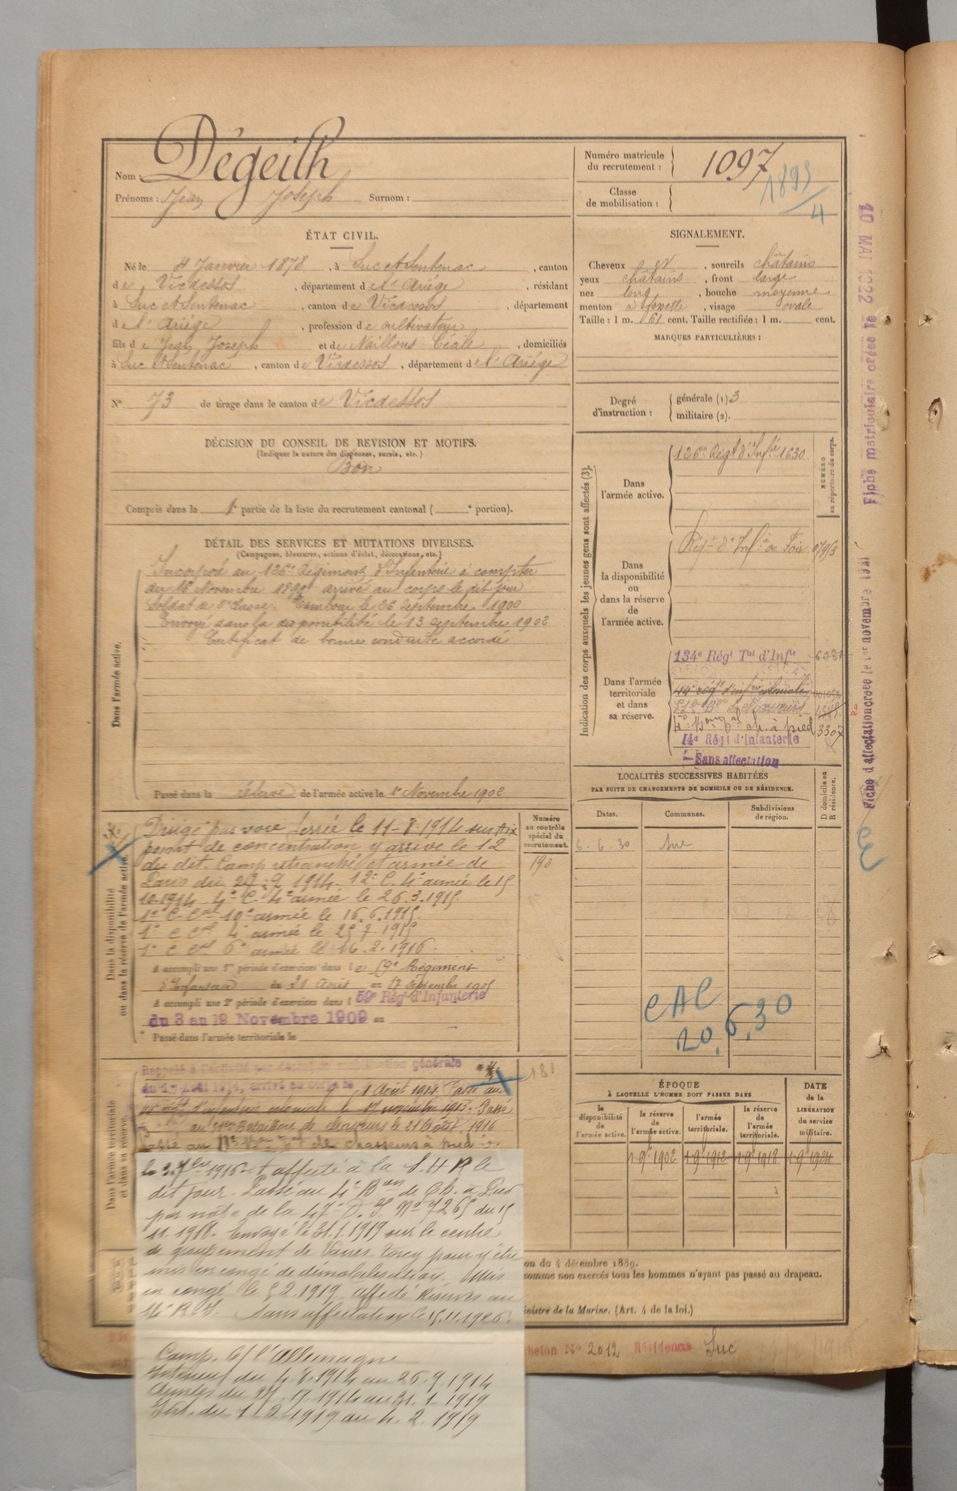 Nom : Dégeilh
Prénoms : Jean Joseph Surnom :
Numéro matricule du recrutement : 1097
Classe de mobilisation :
1893
4
ÉTAT CIVIL.
Né le 4 Janvier 1878, à Suc et Sentenac, canton
de Vicdessos, département de l'Ariège, résidant
à Suc et Sentenac, canton de Vicdessos, département
de l'Ariège, profession de cultivateur
fils de Jean Joseph et de Naillous, domiciliés
à Suc et Sentenac, canton de Vicdessos, département de l'Ariège
N° 73 de tirage dans le canton de Vicdessos
DÉCISION DU CONSEIL DE REVISION ET MOTIFS.
(Indiquer la nature des dispenses, sursis, etc.)
Bon
Compris dans la 1e partie de la liste du recrutement cantonal ( e portion).
SIGNALEMENT.
Cheveux et, sourcils châtains
yeux châtains, front large
nez long, bouche moyenne
menton à fossette, visage ovale
Taille : 1 m. 61 cent. Taille rectifiée : 1 m. cent.
MARQUES PARTICULIÈRES :
Degré d'instruction :
générale (1) 3
militaire (2).
DÉTAIL DES SERVICES ET MUTATIONS DIVERSES.
(Campagnes, blessures, actions d'éclat, décorations, etc.)
Dans l'armée active.
Incorporé au 126e Régiment d'Infanterie à compter
du 16 Novembre 1899 arrivé au corps le dit jour
Soldat de 2e classe. Tambour le 26 Septembre 1900
Envoyé dans la disponibilité le 13 Septembre 1902
Certificat de bonne conduite accordé
Passé dans la réserve de l'armée active le 1er Novembre 1902
Indication des corps auxquels les jeunes gens sont affectés (3).
NUMÉRO au répertoire du corps.
Dans l'armée active.
126e Régt d'Infie 1630
Dans la disponibilité ou dans la réserve de l'armée active.
Régt d'Infie de Foix
Dans l'armée territoriale et dans sa réserve.
134e Régt Tal d'Infie
4e Bon de ch. à pied 3307
14e Régt d'Infanterie
Sans affectation
Dans la disponibilité ou dans la réserve de l'armée active.
Numéro au contrôle spécial du recrutement.
190
Dirigé par voie ferrée le 11-8-1914 sur
point de concentration y arrive le 12
du dit. Camp retranché et armée de
Paris du 1914. 12e C. 4e armée le 15
10.1914. 4e C. 4e armée le 26.3.1915
1er C. Cal 10e armée le 16.6.1915.
1er C Cal 4e armée le 1915
1er C Cal 6e armée le 16.2.1916.
A accompli une 1re période d'exercices dans le 59e Régiment
d'Infanterie du 21 Août au 17 Septembre 1905
A accompli une 2e période d'exercices dans le 59e Régt d'Infanterie
du 3 au 19 Novembre 1909
Passé dans l'armée territoriale le
LOCALITÉS SUCCESSIVES HABITÉES
PAR SUITE DE CHANGEMENTS DE DOMICILE OU DE RÉSIDENCE.
Dates. Communes. Subdivisions de région. D domicile ou R résidence.
6.6.30 Suc
CAC
20.6.30
Dans l'armée territoriale et dans sa réserve.
181
Rappelé à l'activité par décret de mobilisation générale
du 1er Août 1914, arrivé au corps le 4 Août 1914. Passé au
d'Infanterie coloniale le 1er novembre 1915. Passé
au 51e Bataillon de chasseurs le 21 Août 1916
Passé au Bon de chasseurs à pied
le 1916 et affecté à la S.H.R. le
dit jour. Passé au 4e Bon de Ch. à Pied
par note de la 47e D. I. N° 7265 du 15
11.1918. Envoyé le 31.1.1919 sur le centre
de groupement de Vaires-Torcy pour y être
mis en congé de démobilisation. Mis
en congé le 5.2.1919 affecté Réserves au
14e R.I. Sans affectation le 15.11.1926.
Camp. C/ l'Allemagne
Intérieur du 4.8.1914 au 26.9.1914
Armées du 27.9.1914 au 31.1.1919
Int. du 1.2.1919 au 4.2.1919
ÉPOQUE
À LAQUELLE L'HOMME DOIT PASSER DANS
la disponibilité de l'armée active.
la réserve de l'armée active.
l'armée territoriale.
la réserve de l'armée territoriale.
DATE de la LIBÉRATION du service militaire.
1-9bre 1902 1-9bre 1912 1-9bre 1918 1-9bre 1924
on du 4 décembre 1889.
omme non exercés tous les hommes n'ayant pas passé au drapeau.
inistre de la Marine. (Art. 4 de la loi.)
helon N° 2012 Résidence Suc
Fiche d'affectation créée le 1er novembre 1921
Fiche matriculaire créée le 10 MAI 1922